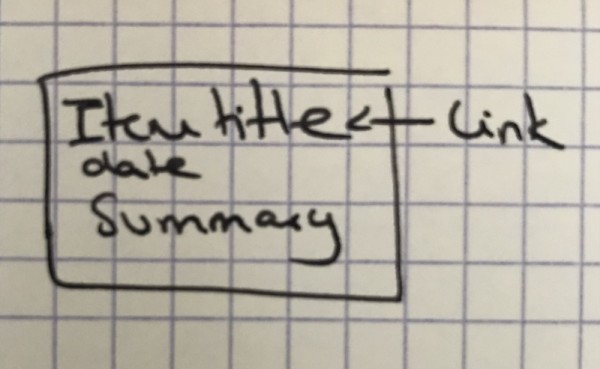 Item title <- Link
date
Summary